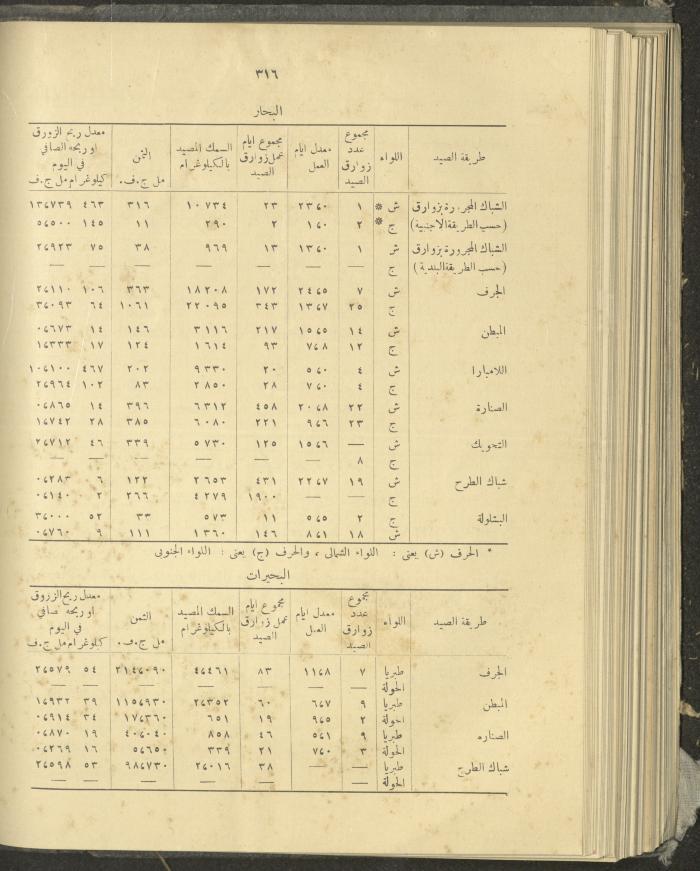 ٣١٦
البحار
طريقة الصيد | اللواء | مجموع عدد زوارق الصيد | معدل ايام العمل | مجموع ايام عمل زوارق الصيد | السمك المصيد بالكيلوغرام | الثمن مل ج.ف. | معدل ربح الزورق او ربحه الصافي في اليوم كيلوغرام مل ج.ف
الشباك المجرورة بزوارق | ش * | ١ | ٢٣٬٠ | ٢٣ | ١٠٧٣٤ | ٣١٦ | ٤٦٣ | ١٣٬٧٣٩
(حسب الطريقة الاجنبية) | ج * | ٢ | ١٬٠ | ٢ | ٢٩٠ | ١١ | ١٤٥ | ٥٬٥٠٠
الشباك المجرورة بزوارق | ش | ١ | ١٣٬٠ | ١٣ | ٩٦٩ | ٣٨ | ٧٥ | ٢٬٩٢٣
(حسب الطريقة البلدية) | ج | — | — | — | — | — | — | —
الجرف | ش | ٧ | ٢٤٬٥ | ١٧٢ | ١٨٢٠٨ | ٣٦٣ | ١٠٦ | ٢٬١١٠
ج | ٢٥ | ١٣٬٧ | ٣٤٣ | ٢٢٠٩٥ | ١٠٦١ | ٦٤ | ٣٬٠٩٣
المبطن | ش | ١٤ | ١٥٬٥ | ٢١٧ | ٣١١٦ | ١٤٦ | ١٤ | ٠٬٦٧٣
ج | ١٢ | ٧٬٨ | ٩٣ | ١٦١٤ | ١٢٤ | ١٧ | ١٬٣٣٣
اللامبارا | ش | ٤ | ٥٬٠ | ٢٠ | ٩٣٣٠ | ٢٠٢ | ٤٦٧ | ١٠٬١٠٠
ج | ٤ | ٧٬٠ | ٢٨ | ٢٨٥٠ | ٨٣ | ١٠٢ | ٢٬٩٦٤
الصنارة | ش | ٢٢ | ٢٠٬٨ | ٤٥٨ | ٦٣١٢ | ٣٩٦ | ١٤ | ٠٬٨٦٥
ج | ٢٣ | ٩٬٦ | ٢٢١ | ٦٠٨٠ | ٣٨٥ | ٢٨ | ١٬٧٤٢
التحويك | ش | — | ١٥٬٦ | ١٢٥ | ٥٧٣٠ | ٣٣٩ | ٤٦ | ٢٬٧١٢
ج | ٨ | — | — | — | — | — | —
شباك الطرح | ش | ١٩ | ٢٢٬٧ | ٤٣١ | ٢٦٥٣ | ١٢٢ | ٦ | ٠٬٢٨٣
ج | — | — | ١٩٠٠ | ٤٢٧٩ | ٢٦٦ | ٢ | ٠٬١٤٠
البشلولة | ج | ٢ | ٥٬٥ | ١١ | ٥٧٣ | ٣٣ | ٥٢ | ٣٬٠٠٠
ش | ١٨ | ٨٬١ | ١٤٦ | ١٣٦٠ | ١١١ | ٩ | ٠٬٧٦٠
* الحرف (ش) يعني : اللواء الشمالى ، والحرف (ج) يعنى : اللواء الجنوبى
البحيرات
طريقة الصيد | اللواء | مجموع عدد زوارق الصيد | معدل ايام العمل | مجموع ايام عمل زوارق الصيد | السمك المصيد بالكيلوغرام | الثمن مل ج.ف. | معدل ربح الزروق او ربحه الصافي في اليوم كيلوغرام مل ج.ف
الجرف | طبريا | ٧ | ١١٬٨ | ٨٣ | ٤٬٤٦١ | ٢١٤٬٠٩٠ | ٥٤ | ٢٬٥٧٩
الحولة | — | — | — | — | — | — | —
المبطن | طبريا | ٩ | ٦٬٧ | ٦٠ | ٢٬٣٥٢ | ١١٥٬٩٣٠ | ٣٩ | ١٬٩٣٢
الحولة | ٢ | ٩٬٥ | ١٩ | ٦٥١ | ١٧٬٣٦٠ | ٣٤ | ٠٬٩١٤
الصناره | طبريا | ٩ | ٥٬١ | ٤٦ | ٨٥٨ | ٤٠٬٠٤٠ | ١٩ | ٠٬٨٧٠
الحولة | ٣ | ٧٬٠ | ٢١ | ٣٣٩ | ٥٬٦٥٠ | ١٦ | ٠٬٢٦٩
شباك الطرح | طبريا | — | — | ٣٨ | ٢٬٠١٦ | ٩٨٬٧٣٠ | ٥٣ | ٢٬٥٩٨
الحولة | — | — | — | — | — | — | —